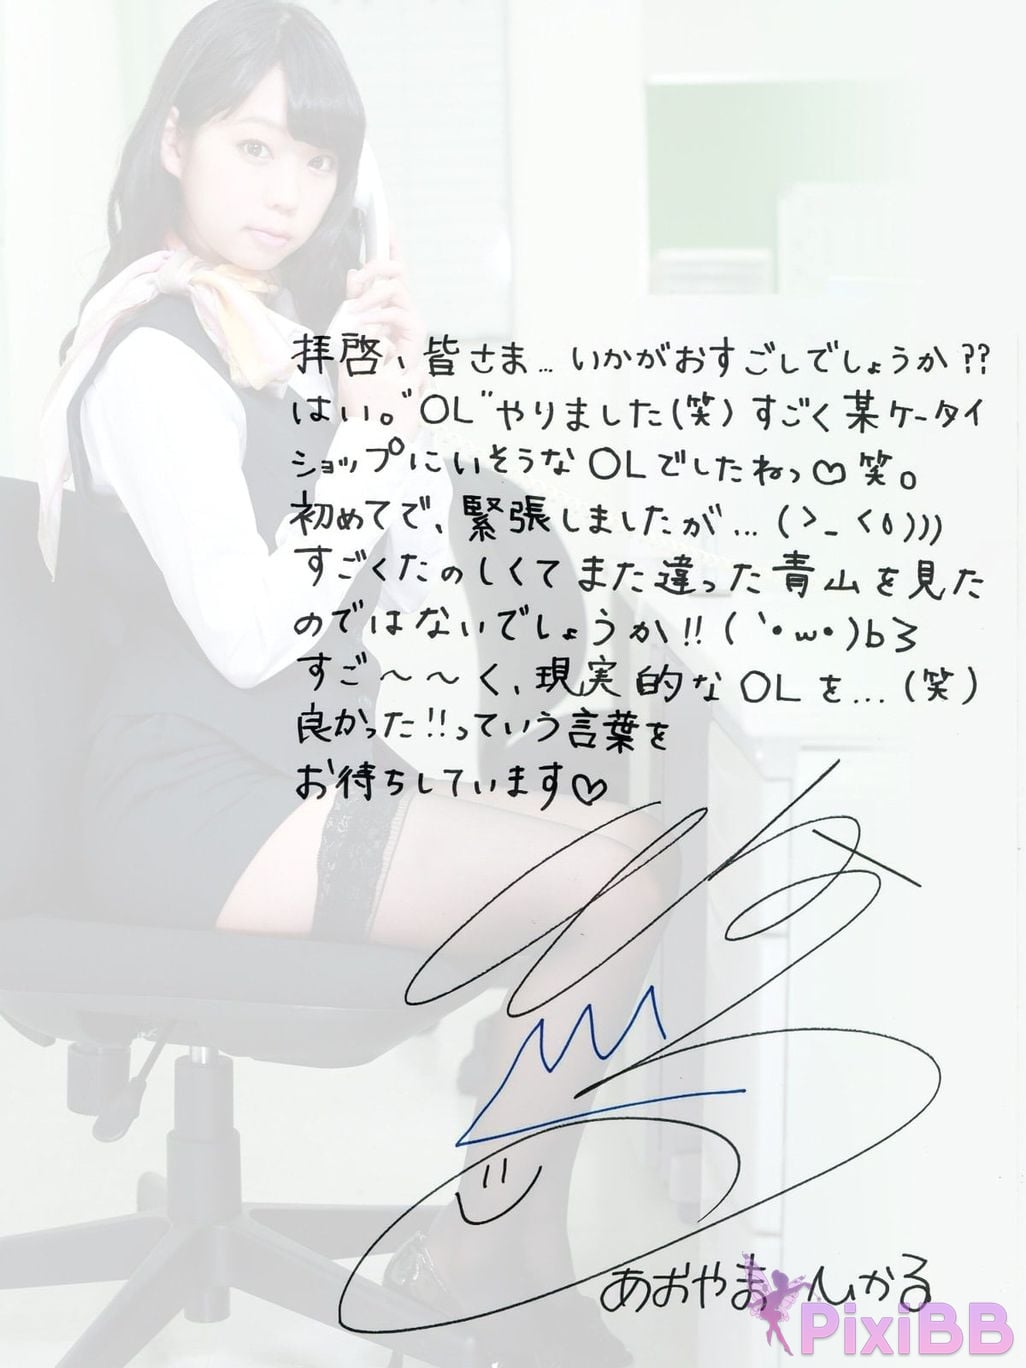 拝啓、皆さま…いかがおすごしでしょうか??
はい。"OL"やりました(笑)すごく某ケータイ
ショップにいそうなOLでしたねっ♡笑。
初めてで、緊張しましたが…(>_<۵)))
すごくたのしくてまた違った青山を見た
のではないでしょうか!!(`•ω•)b3
すご〜〜く、現実的なOLを…(笑)
良かった!!っていう言葉を
お待ちしています♡
あおやまひかる
PixiBB